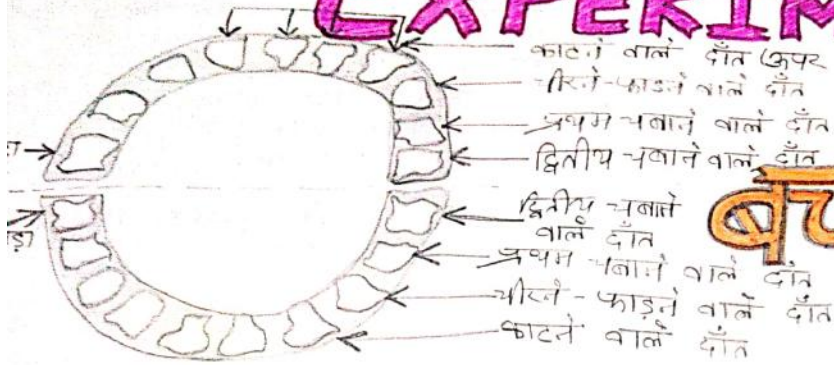 EXPERIM
काटने वाले दाँत (ऊपर
चीरने-फाडने वाले दाँत
प्रथम चबाने वाले दाँत
द्वितीय चबाने वाले दाँत
बच
द्वितीय चबाने
वाले दाँत
प्रथम चबाने वाले दाँत
चीरने - फाड़ने वाले दाँत
काटने वाले दाँत